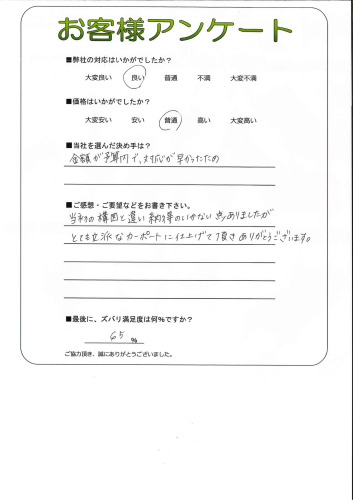 お客様アンケート
■弊社の対応はいかがでしたか?
大変良い 良い 普通 不満 大変不満
■価格はいかがでしたか?
大変安い 安い 普通 高い 大変高い
■当社を選んだ決め手は?
金額が予算内で、対応が早かったため
■ご感想・ご要望などをお書き下さい。
当初の構図と違い納得のいかない点ありましたが
とても立派なカーポートに仕上げて頂きありがとうございます。
■最後に、ズバリ満足度は何%ですか?
65 %
ご協力頂き、誠にありがとうございました。